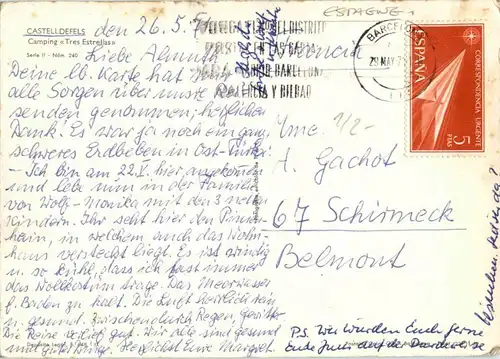 ESPAGNE
CASTELLDEFELS
Camping «Tres Estrellas»
Serie II - Núm. 240
den 26.5.7
Liebe Almuth
Deine lb. Karte hat
alle Sorgen über uns
senden genommen; herzlichen
Dank! Es war ja noch ein ganz
schweres Erdbeben in Ost-Türkei
- Ich bin am 22.V. hier angekommen
und lebe nun in der Familie
von Wolf-Monika mit den 3 netten
Kindern. Ihr seht hier den Pinien-
hain, in welchem auch das Wohn-
haus versteckt liegt. Es ist windig
u. so kühl, dass ich fast immer
das Wollkostüm trage. Das Meerwasser
f. Baden zu kalt. Die Luft herrlich rein
u. gesund. Zwischendurch Regen, Gewitter
Die Reise verlief gut. Wir alle sind gesund
und guter Dinge. Herzlichst Eure Margret.
DISTRITO
EN LAS CARTAS
BARCELONA
VALENCIA Y BILBAO
BARCELONA
29 MAY 7
ESPAÑA
CORRESPONDENCIA URGENTE
5
PTAS
Mme. 1/2-
A. Gachot
67 Schirmeck
Belmont
P.S. Wir würden Euch gerne
Ende Juni auf der